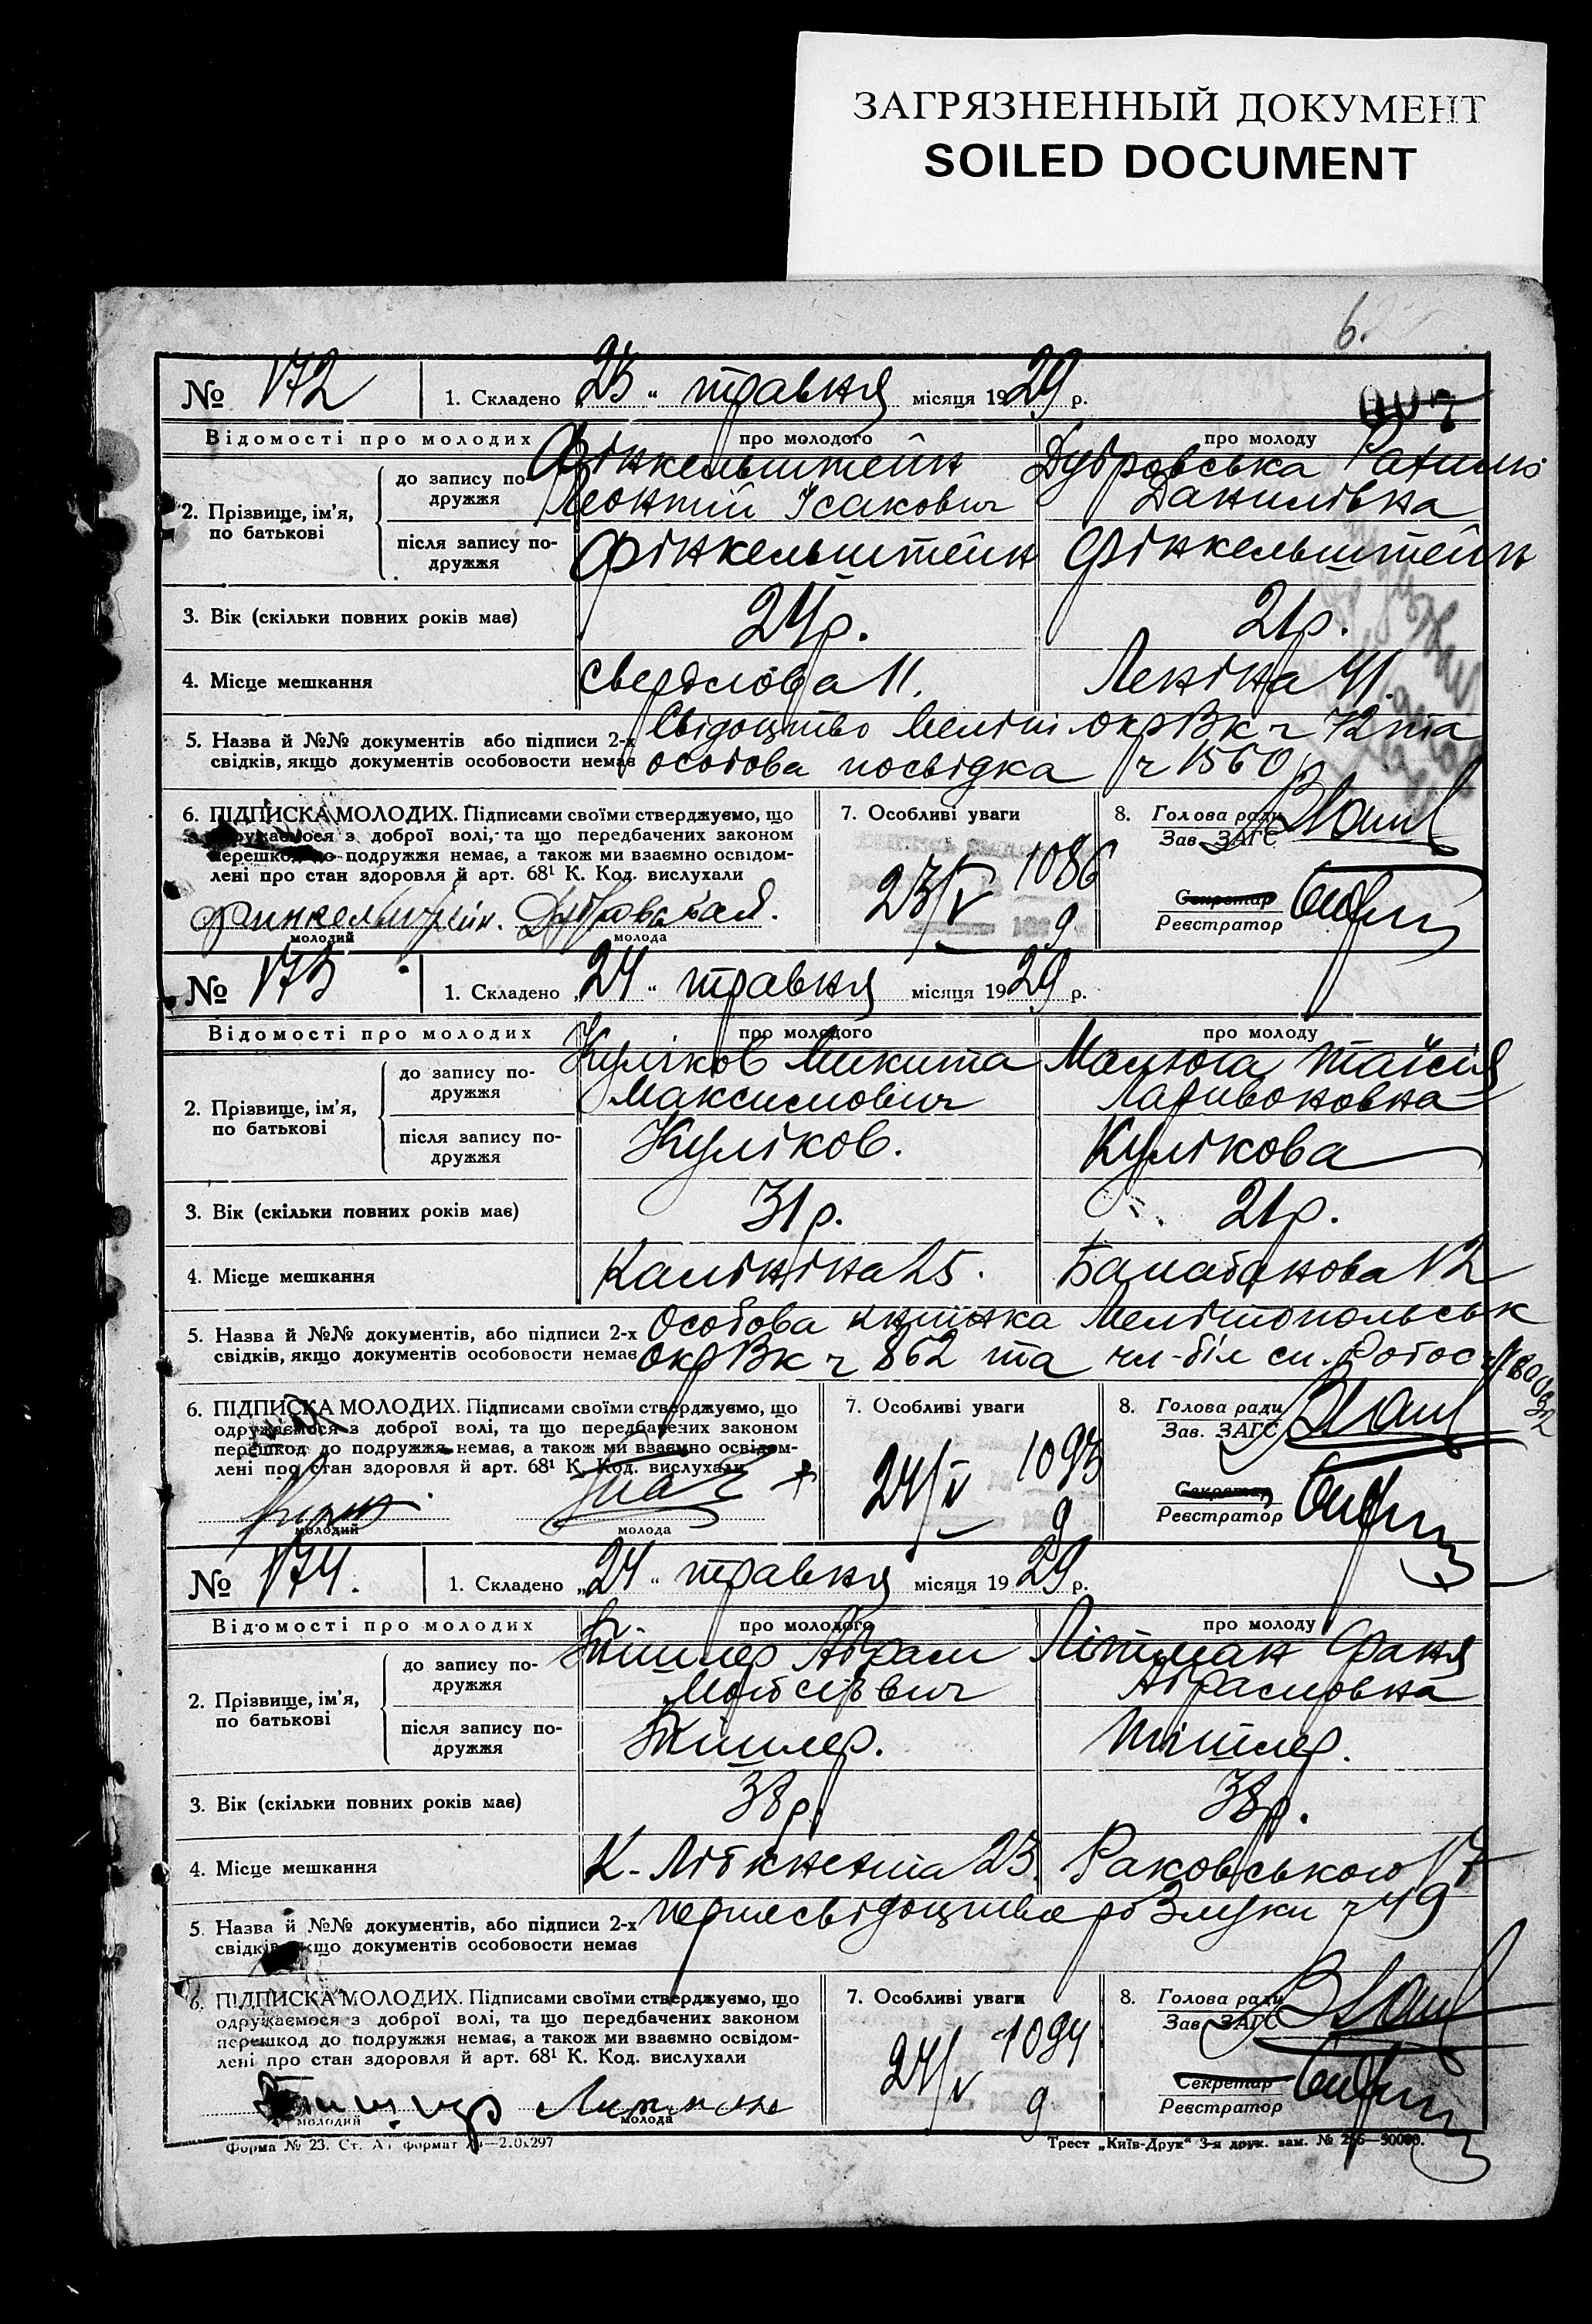 ЗАГРЯЗНЕННЫЙ ДОКУМЕНТ
SOILED DOCUMENT
6.
№ 172 1. Складено „23“ травня місяця 1929 р.
Відомості про молодих про молодого про молоду
2. Прізвище, ім'я, по батькові
до запису подружжя
Фінкельштейн Дубровська Рахиль
Леонтій Ісакович Данилівна
після запису подружжя
Фінкельштейн Фінкельштейн
3. Вік (скільки повних років має) 24р. 21р.
4. Місце мешкання Свердлова 11. Леніна 41.
5. Назва й №№ документів або підписи 2-х Свідоцтво Меліт ОкрВк ч 72 та
свідків, якщо документів особовости немає особова посвідка ч 1560
6. ПІДПИСКА МОЛОДИХ. Підписами своїми стверджуємо, що 7. Особливі уваги 8. Голова ради
одружаємося з доброї волі, та що передбачених законом Зав. ЗАГС
перешкод до подружжя немає, а також ми взаємно освідом-
лені про стан здоровля й арт. 68¹ К. Код. вислухали
23/V 1086 9
Секретар
Реєстратор
молодий молода
№ 173 1. Складено „24“ травня місяця 1929 р.
Відомості про молодих про молодого про молоду
2. Прізвище, ім'я, по батькові
до запису подружжя
Куліков Микита Малюга Таїсія
Максимович Ларивоновна
після запису подружжя
Куліков. Кулікова
3. Вік (скільки повних років має) 31р. 21р.
4. Місце мешкання Калініна 25. Балабанова 12
5. Назва й №№ документів, або підписи 2-х Особова книжка Мелітопольськ
свідків, якщо документів особовости немає ОкрВк ч 862 та чл-біл сп.
6. ПІДПИСКА МОЛОДИХ. Підписами своїми стверджуємо, що 7. Особливі уваги 8. Голова ради
одружаємося з доброї волі, та що передбачених законом Зав. ЗАГС
перешкод до подружжя немає, а також ми взаємно освідом-
лені про стан здоровля й арт. 68¹ К. Код. вислухали
24/V 1093 9
Секретар
Реєстратор
молодий молода
№ 174. 1. Складено „24“ травня місяця 1929 р.
Відомості про молодих про молодого про молоду
2. Прізвище, ім'я, по батькові
до запису подружжя
Тішлер Абрам Літман Фаня
Мойсієвич Абрамовна
після запису подружжя
Тішлер. Тішлер.
3. Вік (скільки повних років має) 38р. 38р.
4. Місце мешкання К-Лібкнехта 23. Раковського 17
5. Назва й №№ документів, або підписи 2-х ч 49
свідків, якщо документів особовости немає
6. ПІДПИСКА МОЛОДИХ. Підписами своїми стверджуємо, що 7. Особливі уваги 8. Голова ради
одружаємося з доброї волі, та що передбачених законом Зав. ЗАГС
перешкод до подружжя немає, а також ми взаємно освідом-
лені про стан здоровля й арт. 68¹ К. Код. вислухали
24/V 1094 9
Секретар
Реєстратор
молодий молода
Форма № 23. Ст. формат Трест „Київ-Друк“ 3-я друк. зам. №